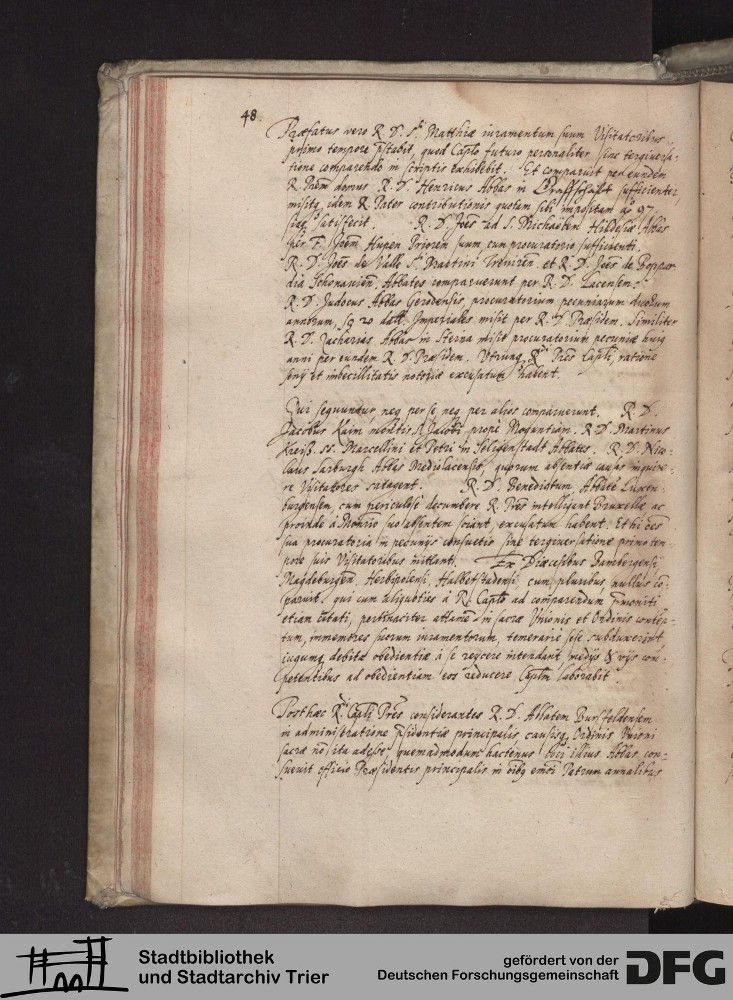 48.
Præfatus vero R. D. S. Matthiæ iuramentum suum Visitatoribus
primo tempore pstabit, quod Caplo futuro personaliter sine tergiuersa-
tione comparendo in scriptis exhibebit. Et comparuit per eundem
R. Prem domus R. D. Henricus Abbas in sufficienter,
misitq idem R. Pater contributionis quotam sibi impositam ao 97.
sicq satisfecit. R. D. Joes ad S. Michaëlem Hildesiæ Abbas
per F. Joem Hupen Priorem suum cum procuratorio sufficienti.
R. D. Joes de Valle S. Martini Treuiren. et R. D. Joes de Boppar-
dia Schonauien. Abbates comparuerunt per R. D. Lacensem.
R. D. Judocus Abbas Gerodensis procuratorium pecuniarum duorum
annorum, sq 20 dall. Imperiales misit per R. D. Præsidem. Similiter
R. D. Zacharias Abbas in Sterna misit procuratorium pecuniæ huiq
anni per eundem R. D. Præsidem. Utrunq R. Pres Capli, ratione
senij et imbecillitatis notoriæ excusatum habent.
Qui sequuntur neq per se neq per alios comparuerunt. R. D.
Jacobus Kaim montis S. Jacobi propè Mogontiam. R. D. Martinus
Kreiß. SS. Marcellini et Petri in Seligenstadt Abbates. R. D. Nico-
laus Sarburgh Abbas Mediolacensis, quorum absentiæ causas inquire-
re Visitatores satagent. R. D. Benedictum Abbate Luxem-
burgensem, cum periculosè decumbere R. Pres intelligant Bruxellæ ac
proinde à Monrio suo absentem sciant, excusatum habent. Et hi oes
sua procuratoria in pecunijs consuetis sine tergiuersatione primo tem-
pore suis Visitatoribus mittant. Ex Diœcesibus Bambergensi,
Magdeburgen. Herbipolensi, Halberstadensi, cum pluribus, nullus co-
paruit. qui cum aliquoties à R. Caplo ad comparendum pmoniti
etiam citati, pertinaciter attame in sacræ Unionis et Ordinis contep-
tum, immemores suorum iuramentorum, temerariè sese subduxerint
iugumq debitæ obedientiæ à se reycere intendant, medijs & vijs com-
petentibus ad obedientiam eos reducere Caplm laborabit.
Posthæc R. Capli Pres considerantes R. D. Abbatem Bursfeldensem
in administratione psidentiæ principalis causisq Ordinis Unioni
sacræ no ita adesse, quemadmodum hactenus loci illius Abbas con-
sueuit officio Præsidentis principalis in oibq emori Patrum annalibus
Stadtbibliothek
und Stadtarchiv Trier
gefördert von der
Deutschen Forschungsgemeinschaft
DFG